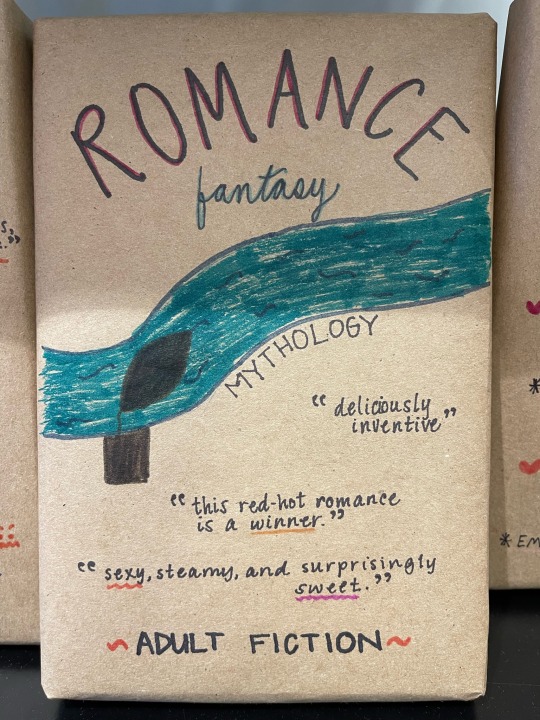 ROMANCE
fantasy
MYTHOLOGY
“deliciously
inventive”
“this red-hot romance
is a winner.”
“sexy, steamy, and surprisingly
sweet.”
~ADULT FICTION~
* EM